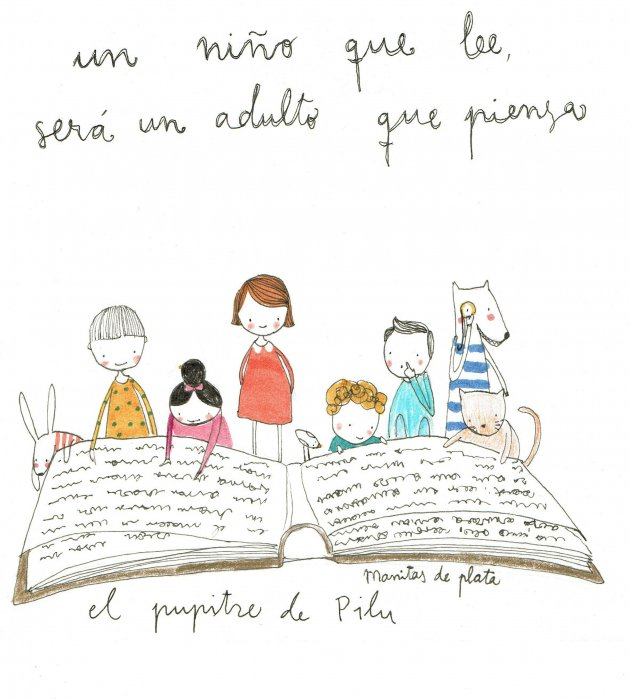 un niño que lee,
será un adulto que piensa
manitas de plata
el pupitre de Pilu